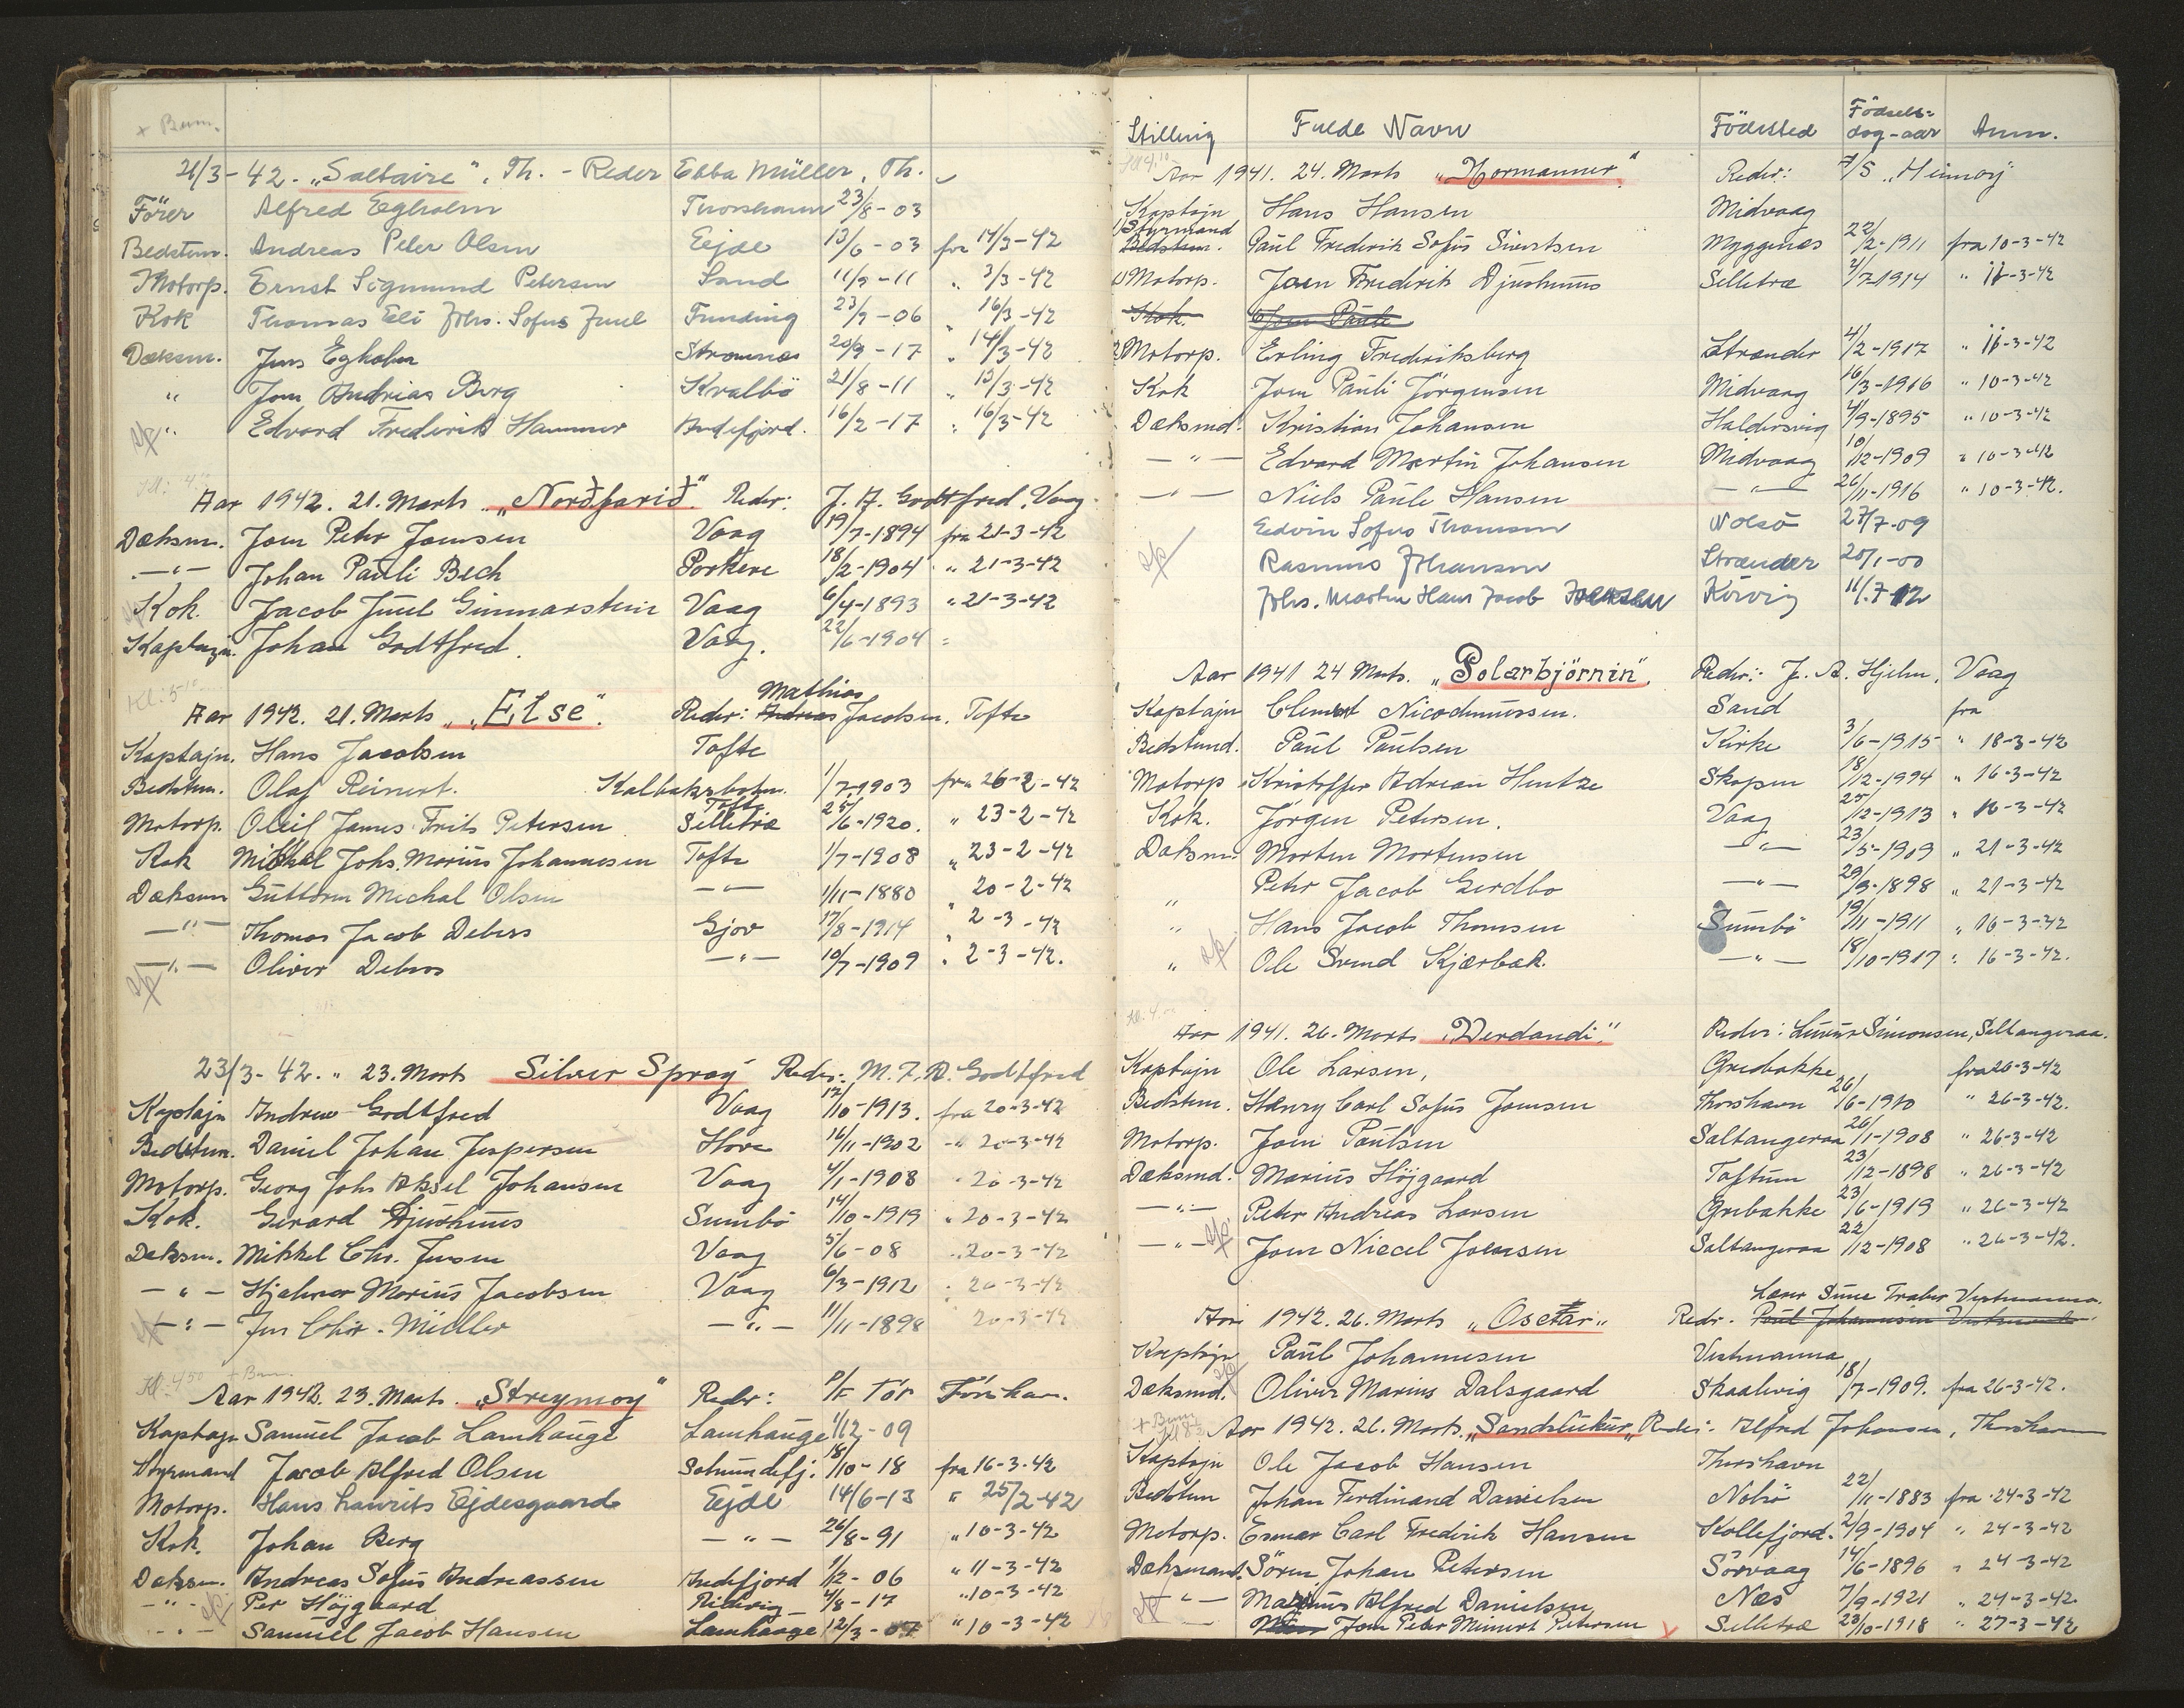 + Bem.
21/3-42. „Saltaire", Th. - Reder Ebba Müller, Th.
Förer Alfred Egholm Thorshavn 23/8-03
Bedstem. Andreas Peter Olsen Ejde 13/6-03 fra 14/3-42
Motorp. Ernst Sigmund Petersen Sand 11/9-11 " 3/3-42
Kok Thomas Eli Johs. Sofus Juul Funding 23/9-06 " 16/3-42
Dæksm. Jens Egholm Strømnæs 20/9-17 " 14/3-42
" Joen Andrias Berg Kvalbö 21/8-11 " 13/3-42
" Edvard Frederik Hammer Andefjord. 16/2-17 " 16/3-42
Aar 1942. 21. Marts „Norðfarið" Reder: J. A. Godtfred, Vaag.
Dæksm. Joen Peter Joensen Vaag 19/7-1894 fra 21-3-42
-"- Johan Pauli Bech Porkere 18/2-1904 " 21-3-42
Kok. Jacob Juul Ginnarstein Vaag 6/4-1893 " 21-3-42
Kaptajn. Johan Godtfred. Vaag. 22/6-1904 =
Kl: 5-10
Mathias
Aar 1942. 21. Marts „Else". Reder: Andreas Jacobsen. Tofte
Kaptajn. Hans Jacobsen Tofte
Bedstem. Olaf Reinert. Kalbaksbotn. 1/7-1903 fra 26-2-42
Tofte
Motorp. Oleif James Frits Petersen Selletræ 25/6-1920. " 23-2-42
Kok Mikkal Johs. Marius Johannesen Tofte 1/7-1908 " 23-2-42
Dæksm Guttorm Mechal Olsen -"- 1/11-1880 " 20-2-42
-"- Thomas Jacob Debess Gjov 17/8-1914 " 2-3-42
-"- Oliver Debess -"- 10/7-1909 " 2-3-42.
23/3-42. " 23. Marts Silver Spray Reder: M. F. A. Godtfred
Kaptajn Andrew Godtfred Vaag 12/10-1913. fra 20-3-42
Bedstem. Daniel Johan Jespersen Hove 16/11-1902 -"- 20-3-42
Motorp. Georg Johs Aksel Johansen Vaag 4/1-1908 " 20-3-42
Kok. Gerard Djurhuus Sumbö 14/10-1919 " 20-3-42
Dæksm. Mikkel Chr. Jensen Vaag 5/6-08 " 20-3-42
-"- Hjalmar Marius Jacobsen Vaag 6/3-1912 " 20-3-42
-"- Jens Chr. Müller -"- 11/11-1898 " 20-3-42
Kl: 450 + Bem.
Aar 1942. 23. Marts. „Streymoy" Reder: P/F Tór Tórshavn.
Kaptajn Samuel Jacob Lamhauge Lamhauge 1/12-09
Styrmand Jacob Alfred Olsen Solmundefj. 18/10-18 fra 16-3-42
Motorp. Hans Laurits Ejdesgaard Ejde 14/6-13 " 25/2-42
Kok. Johan Berg -"- 26/8-91 " 10-3-42
Dæksm. Andreas Sofus Andreassen Andefjord 1/2-06 " 11-3-42
-"- Per Højgaard Ritevig 4/8-17 " 10-3-42
-"- Samuel Jacob Hansen Lamhauge 12/3-07 " 10-3-42
Stilling Fulde Navn Födested Födsels-dag-aar Anm.
Aar 1941. 24. Marts „Normanner" Reder: A/S „Heimoy"
Kaptajn Hans Hansen Midvaag
1) Styrmand
Bedstem. Paul Frederik Sofus Sivertsen Myggenæs 22/2-1911 fra 10-3-42
1) Motorp. Joen Frederik Djurhuus Selletræ 2/7-1914 " 11-3-42
Kok. Joen Paule
2 Motorp. Erling Frederiksberg Strænder 4/2-1917 " 11-3-42
Kok Joen Pauli Jörgensen Midvaag 16/3-1916 " 10-3-42
Dæksmd. Kristian Johansen Haldersvig 4/9-1895 " 10-3-42
-"- Edvard Martin Johansen Midvaag 10/12-1909 " 10-3-42
-"- Niels Paule Hansen -"- 26/11-1916 " 10-3-42.
Edvin Sofus Thomsen Nolsö 27/7-09
Rasmus Johansen Strænder 20/1-00
Johs. Martin Hans Jacob Joensen Kirvig 11/7-12
Aar 1941 24 Marts. „Polarbjörnin". Reder: J. A. Hjelm, Vaag
Kaptajn Clement Nicodemussen. Sand fra
Bedstemd. Paul Paulsen Kirke 3/6-1915 " 18-3-42
Motorp Kristoffer Adrian Hentze Skopen 18/12-1994 " 16-3-42
Kok. Jörgen Petersen. Vaag 25/12-1913 " 16-3-42
Dæksm. Morten Mortensen -"- 23/5-1909 " 21-3-42
" Peter Jacob Gerdbo -"- 29/9-1898 " 21-3-42
" Hans Jacob Thomsen Sumbö 19/11-1911 " 16-3-42
" Ole Svend Kjærbæk. -"- 18/10-1917 " 16-3-42.
Aar 1941. 26. Marts „Verdandi" Reder: Simonsen, Saltangeraa.
Kaptajn Ole Larsen, Grebakke fra 26-3-42
Bedstem. Hænry Carl Sofus Joensen Thorshavn 26/6-1910 " 26-3-42.
Motorp. Joen Paulsen Saltangeraa 26/1-1908 " 26-3-42
Dæksmd. Marius Höjgaard Toftum 23/12-1898 " 26-3-42
-"- Peter Andreas Larsen Grebakke 23/6-1919 " 26-3-42
-"- Joen Niecel Joensen Saltangeraa 22/12-1908 " 26-3-42.
Vestmanna.
1942. 26. Marts „Osctar" Redr. Paul Johannesen Vestmanna
Kaptajn Paul Johannesen Vestmanna
Dæksmd. Oliver Marius Dalsgaard Skaalevig 18/7-1909. fra 26-3-42.
+ Bem
Aar 1942. 26. Marts. „Sandslukur" Reder: Alfred Johansen, Thorshavn
Kaptajn Ole Jacob Hansen Thorshavn
Bedstem Johan Ferdinand Danielsen Nolsö 22/11-1883 fra 24-3-42
Motorp. Esmar Carl Frederik Hansen Kollefjord. 2/9-1904 " 24-3-42
Dæksmand. Sören Johan Petersen Sörvaag 14/6-1896 " 24-3-42
-"- Marius Alfred Danielsen Næs 7/9-1921 " 24-3-42.
- Joen Peter Meinert Petersen x Selletræ 23/10-1918 " 27-3-42